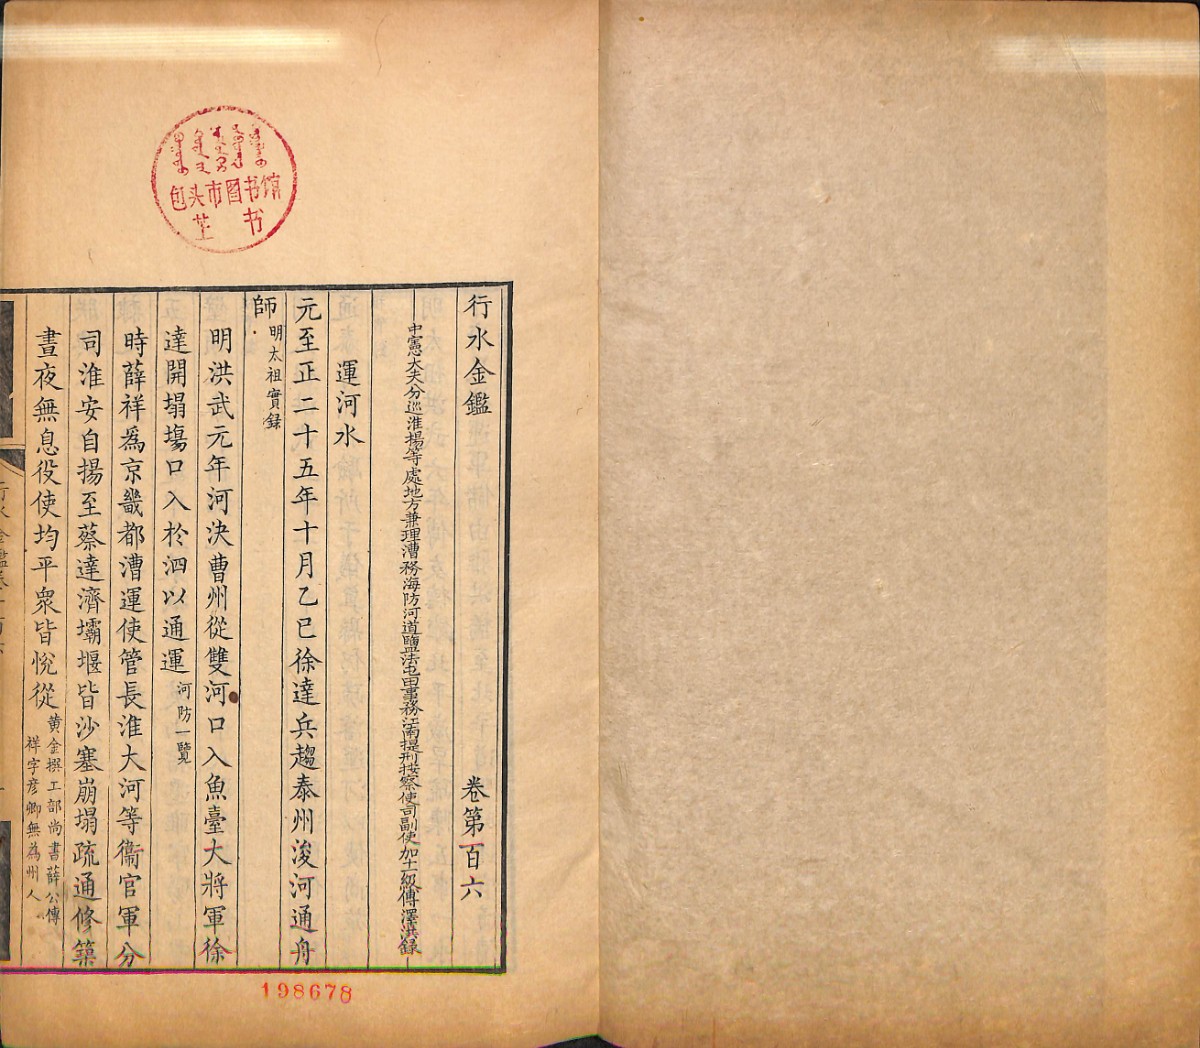 行水金鑑 卷第百六
中憲大夫分巡淮揚等處地方兼理漕務海防河道鹽法屯田事務江南提刑按察使司副使加十一級傅澤洪録
運河水
元至正二十五年十月乙巳徐達兵趨泰州浚河通舟
師明太祖實録
明洪武元年河決曹州從雙河口入魚臺大將軍徐
達開塌塲口入於泗以通運河防一覽
時薛祥爲京畿都漕運使管長淮大河等衞官軍分
司淮安自揚至蔡達濟壩堰皆沙塞崩塌疏通修築
晝夜無息役使均平衆皆悅從黄金撰工部尚書薛公傳
祥字彦卿無爲州人
行水金鑑卷一百六
包头市图书馆
书
198678